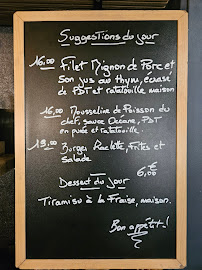 Suggestions du jour
16,00 Filet Mignon de Porc et
son jus au thym, écrasé
de PDT et ratatouille maison
16,00 Mousseline de Poisson du
chef, sauce Océane, PDT
en purée et ratatouille.
15,00 Burger Raclette, Frites et
Salade
Dessert du jour 6,00€
Tiramisu à la Fraise, maison.
Bon appétit!